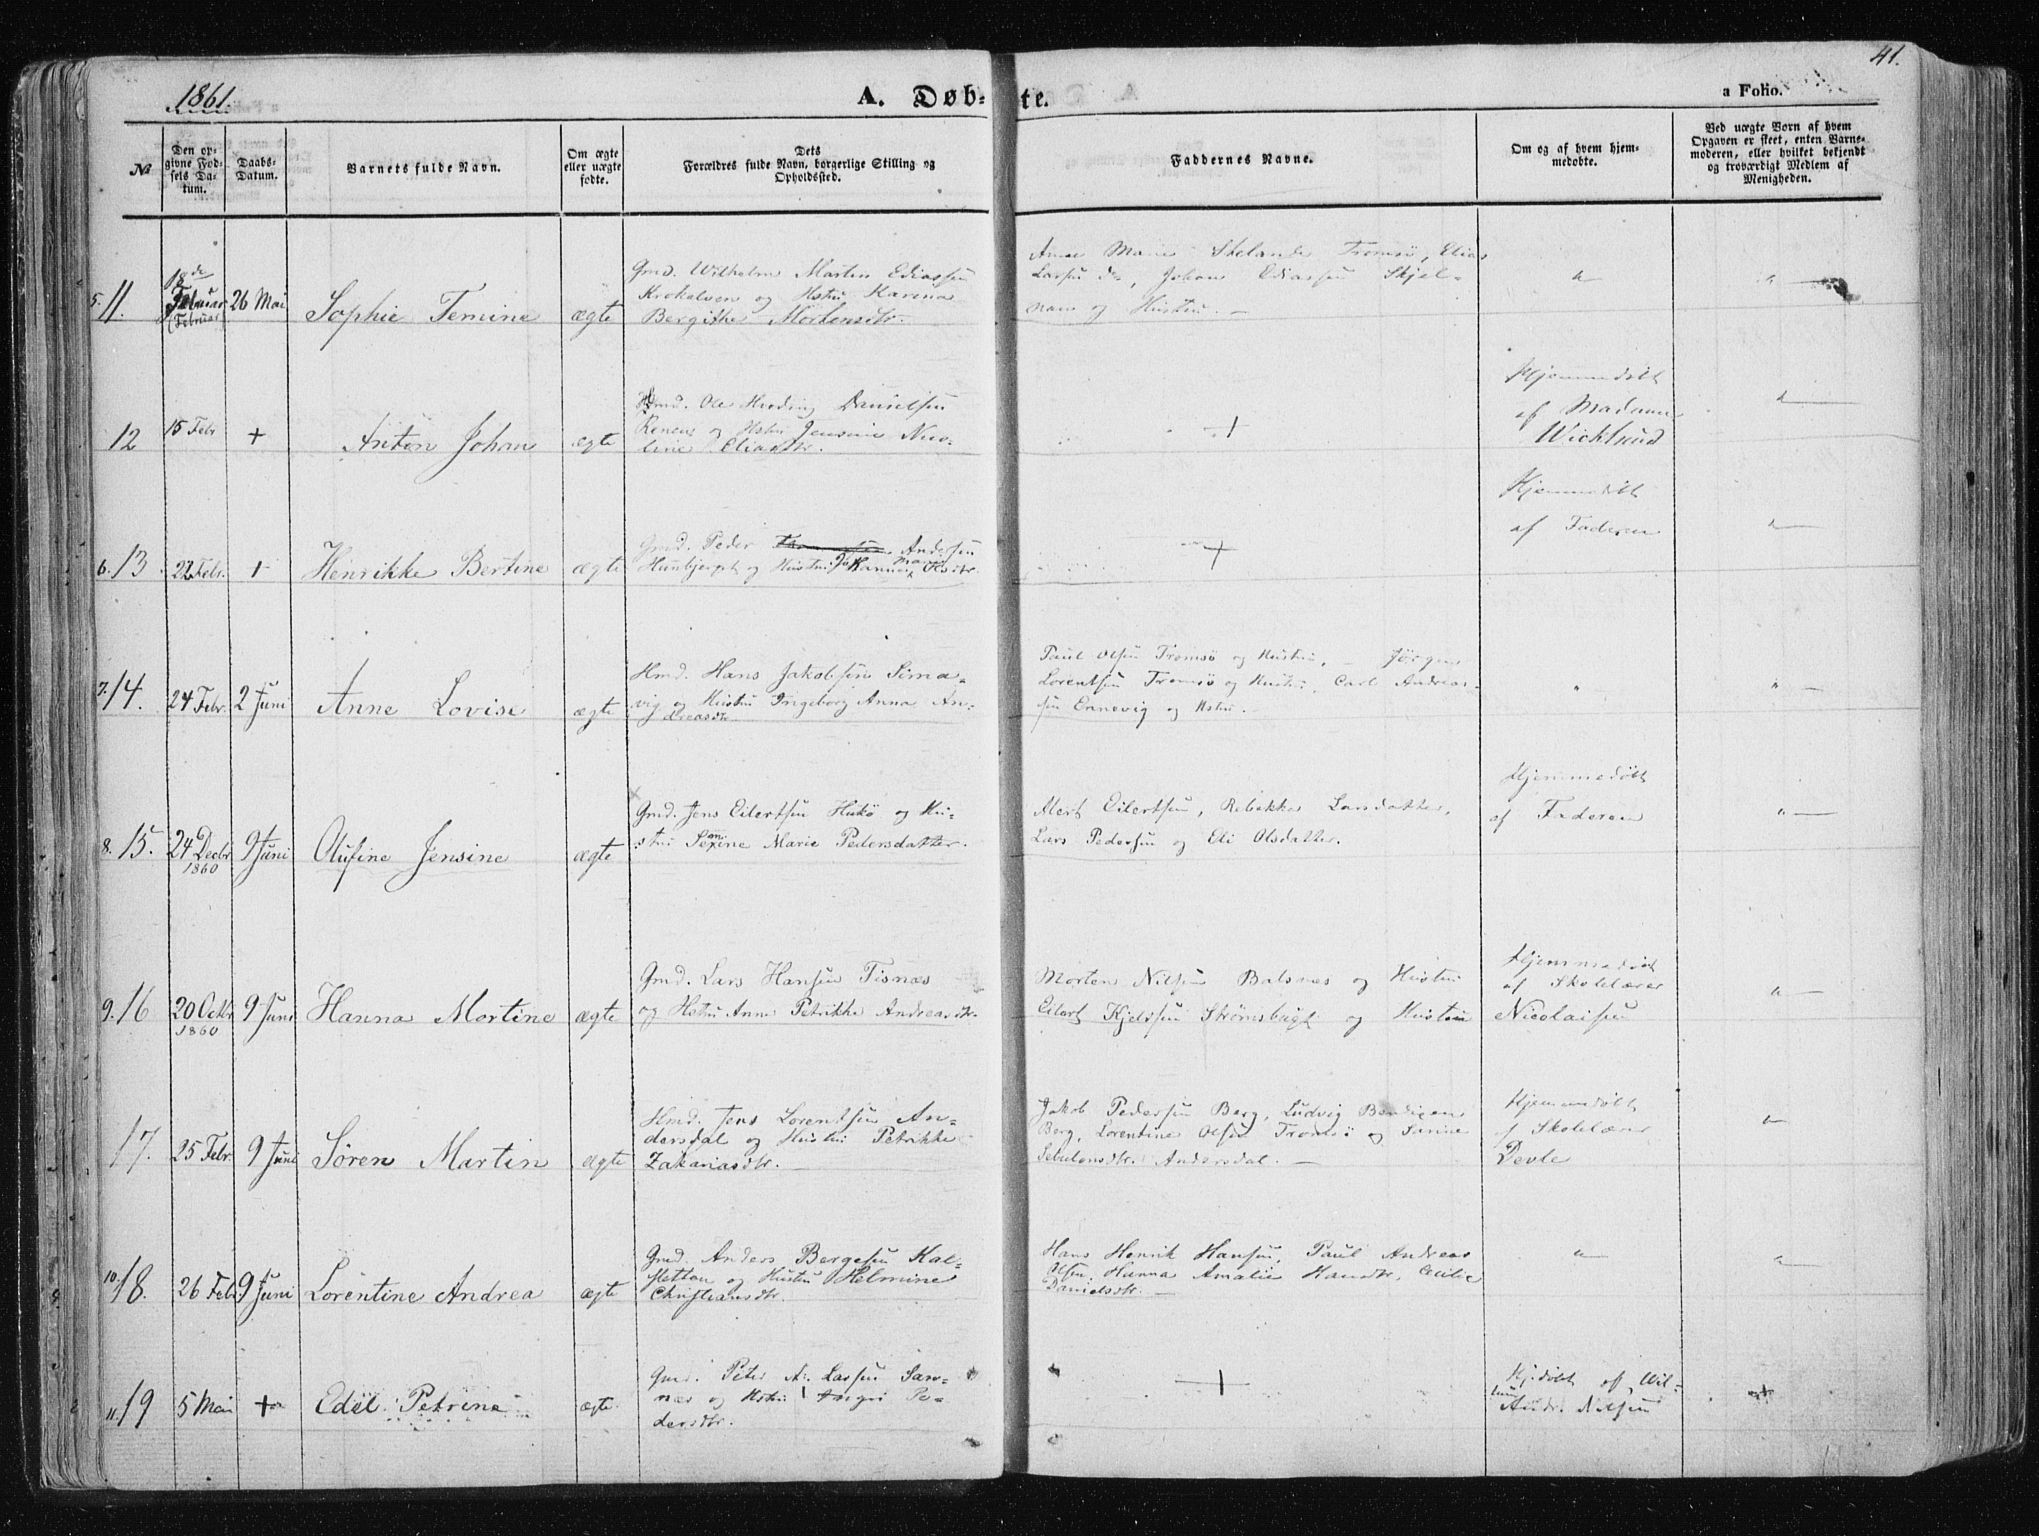 1861.
A. Døb-
te.
41.
a Folio.
№
Den op-
givne Fød-
sels Da-
tum.
Daabs-
Datum.
Barnets fulde Navn.
Om ægte
eller uægte
fødte.
Dets
Forældres fulde Navn, borgerlige Stilling og
Opholdssted.
Faddernes Navne.
Om og af hvem hjem-
medøbte.
Ved uægte Børn af hvem
Opgaven er skeet, enten Barne-
moderen, eller hvilket bekjendt
og troværdigt Medlem af
Menigheden.
5. 11.
18de
Februar
(Februar)
26 Mai
Sophie Temine
ægte
Gmd. Wilhelm Martin Ediassen
Krokelven og Hstru Karina
Bergithe Mortensdtr.
Anne Marie Skelande Tromsø, Elias
Larsen do, Johan Ediassen Skjel-
næs og Hustru. —
"
" —
12
15 Febr
+
Anton Johan
ægte
Hmd. Ole Hveding Danielsen
og Hstru Jensine Nico-
line Eliasdtr.
+
Hjemmedøbt
af Madame
Wicklund
" —
6. 13.
22 Febr.
+
Henrikke Bertine
ægte
Gmd. Peder Andersen
og Hustru Johanne Maria Olsdtr.
+
Hjemmedøbt
af Faderen
" —
7. 14.
24 Febr.
2 Juni
Anne Lovise
ægte
Hmd. Hans Jakobsen Sima-
vig og Hustru Ingeborg Anna An-
dreasdtr.
Paul Olsen Tromsø og Hustru, — Jørgen
Lorentsen Tromsø og Hustru, Carl Andreas-
sen Ennevig og Hstru. —
"
" —
8. 15.
24 Decbr
1860
9 Juni
Olufine Jensine
ægte
Gmd. Jens Eilertsen Hukø og Hu-
stru Marie Pedersdatter.
Mort Eilertsen, Rebekka Larsdatter,
Lars Pedersen og Eli Olsdatter.
Hjemmedøbt
af Faderen
" —
9. 16
20 Octbr
1860
9 Juni
Hanna Mortine
ægte
Gmd. Lars Hansen Tisnæs
og Hstru Anne Petrikke Andreasdtr.
Morten Nilsen Balsnes og Hustru
Eilert Kjelssen Strømsbugt og Hustru
Hjemmedøbt
af Skolelærer
Nicolaisen
" —
17.
25 Febr.
9 Juni
Søren Martin
ægte
Hmd. Jens Lorentsen An-
dersdal og Hustru Petrikke
Zakariasdtr. —
Jakob Pedersen Berg, Ludvig Bendigen
Berg, Lorentine Olsen Tromsø og Sarine
Sebulonsdtr. Andersdal. —
Hjemmedøbt
af Skolelærer
Devle
" —
10. 18.
26 Febr
9 Juni
Lorentine Andrea
ægte
Gmd. Anders Bergesen Kal-
sletten og Hustru Helmine
Christiansdtr.
Hans Henrik Hansen, Paul Andreas
Olsen, Hanna Amalie Hansdtr, Cecilie
Danielsdtr. —
" —
" —
11. 19
5 Mai
+
Edel Petrine
ægte.
Gmd. Peter A. Larsen San-
nær og Hstru Pe-
dersdtr.
+
Hj.døbt af Wil-
lum
Andr. Nilsen
+